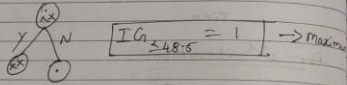 ixx
Y N
xx .
IG≤48.5 = 1 → Maxim